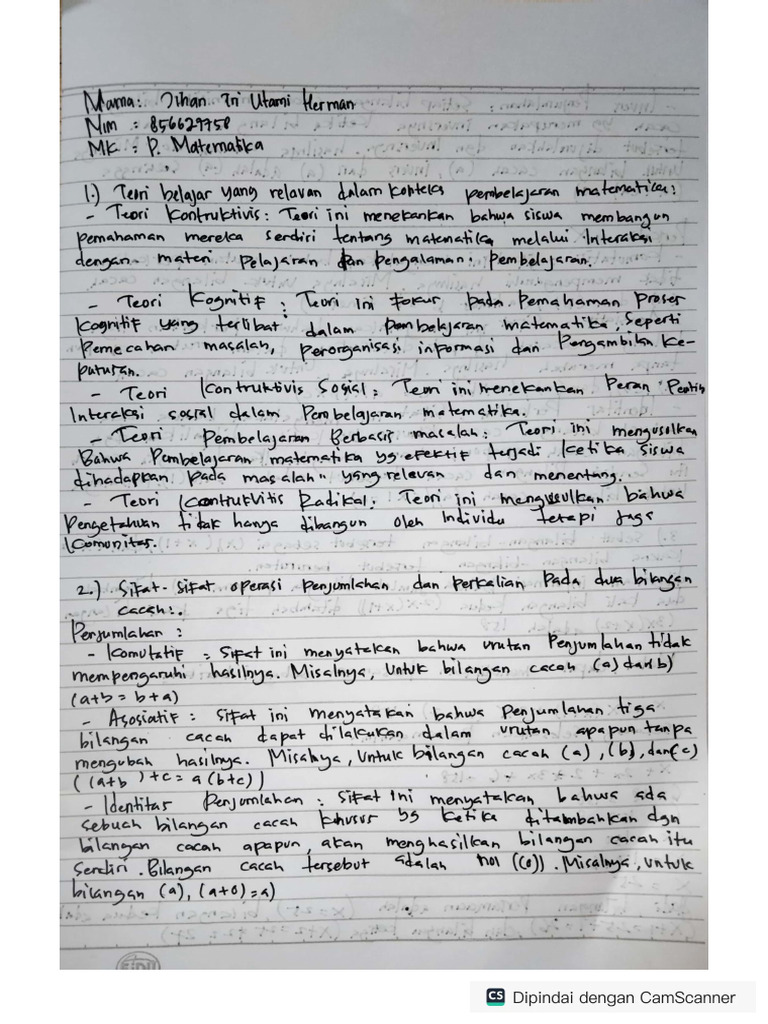 Nama: Jihan Tri Utami Herman
Nim : 856629758
MK : P. Matematika
1.) Teori belajar yang relavan dalam konteks pembelajaran matematika:
- Teori Kontruktivis : Teori ini menekankan bahwa siswa membangun
pemahaman mereka serdiri tentang matematika melalui Interaksi
dengan materi pelajaran dan pengalaman pembelajaran.
- Teori Kognitif : Teori ini fokus pada Pemahaman Proses
Kognitif yang terlibat dalam pembelajaran matematika, Seperti
Pemecahan masalah, perorganisasi informasi dan Pengambilan Ke-
putusan.
- Teori Kontruktivis Sosial : Teori ini menekankan Peran
Interaksi sosial dalam Pembelajaran matematika.
- Teori Pembelajaran Berbasis masalah : Teori ini mengusulkan
Bahwa Pembelajaran matematika yg efektif terjadi ketika siswa
dihadapkan pada masalah" yang relevan dan menentang.
- Teori Kontruktvitis Radikal. Teori ini mengusulkan bahwa
Pengetahuan tidak hanya dibangun oleh Individu tetapi juga
Komunitas.
2.) Sifat-sifat operasi penjumlahan dan perkalian Pada dua bilangan
cacah :.
Penjumlahan :
- Komutatif : Sifat ini menyatakan bahwa urutan Penjumlahan tidak
mempengaruhi hasilnya. Misalnya, Untuk bilangan cacah (a) dan (b)
(a+b = b+a)
- Asosiatif : sifat ini menyatakan bahwa Penjumlahan tiga
bilangan cacah dapat dilakukan dalam urutan apapun tanpa
mengubah hasilnya. Misalnya, Untuk bilangan cacah (a), (b), dan (c)
((a+b)+c = a(b+c))
- Identitas Penjumlahan : sifat ini menyatakan bahwa ada
sebuah bilangan cacah Khusus yg ketika ditambahkan dgn
bilangan cacah apapun, akan menghasilkan bilangan cacah itu
Sendiri. Bilangan cacah tersebut adalah nol (0)). Misalnya, untuk
bilangan (a), (a+0) = a)
SIDU
CS Dipindai dengan CamScanner